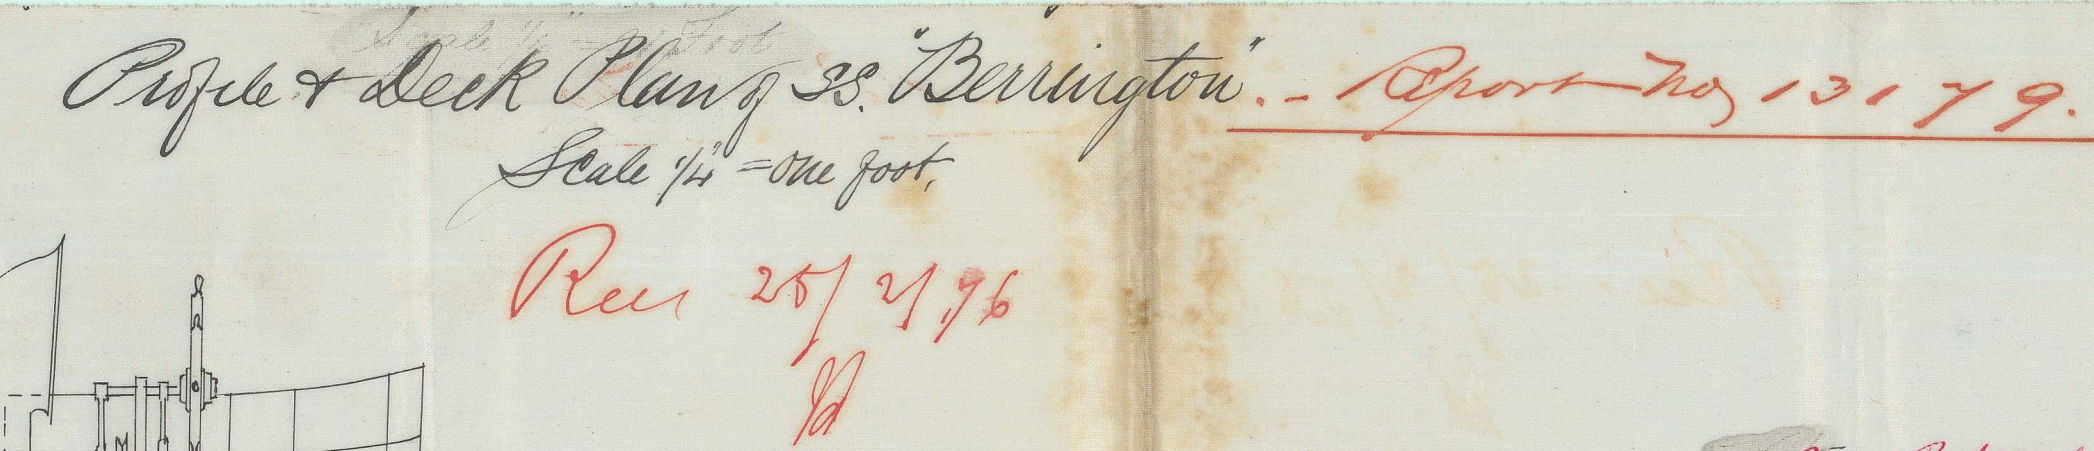 Scale 1/4" = Foot
Profile & Deck Plan of SS. "Berrington". - Report No 13179.
Scale 1/4" = one foot.
Rec 25/2/96